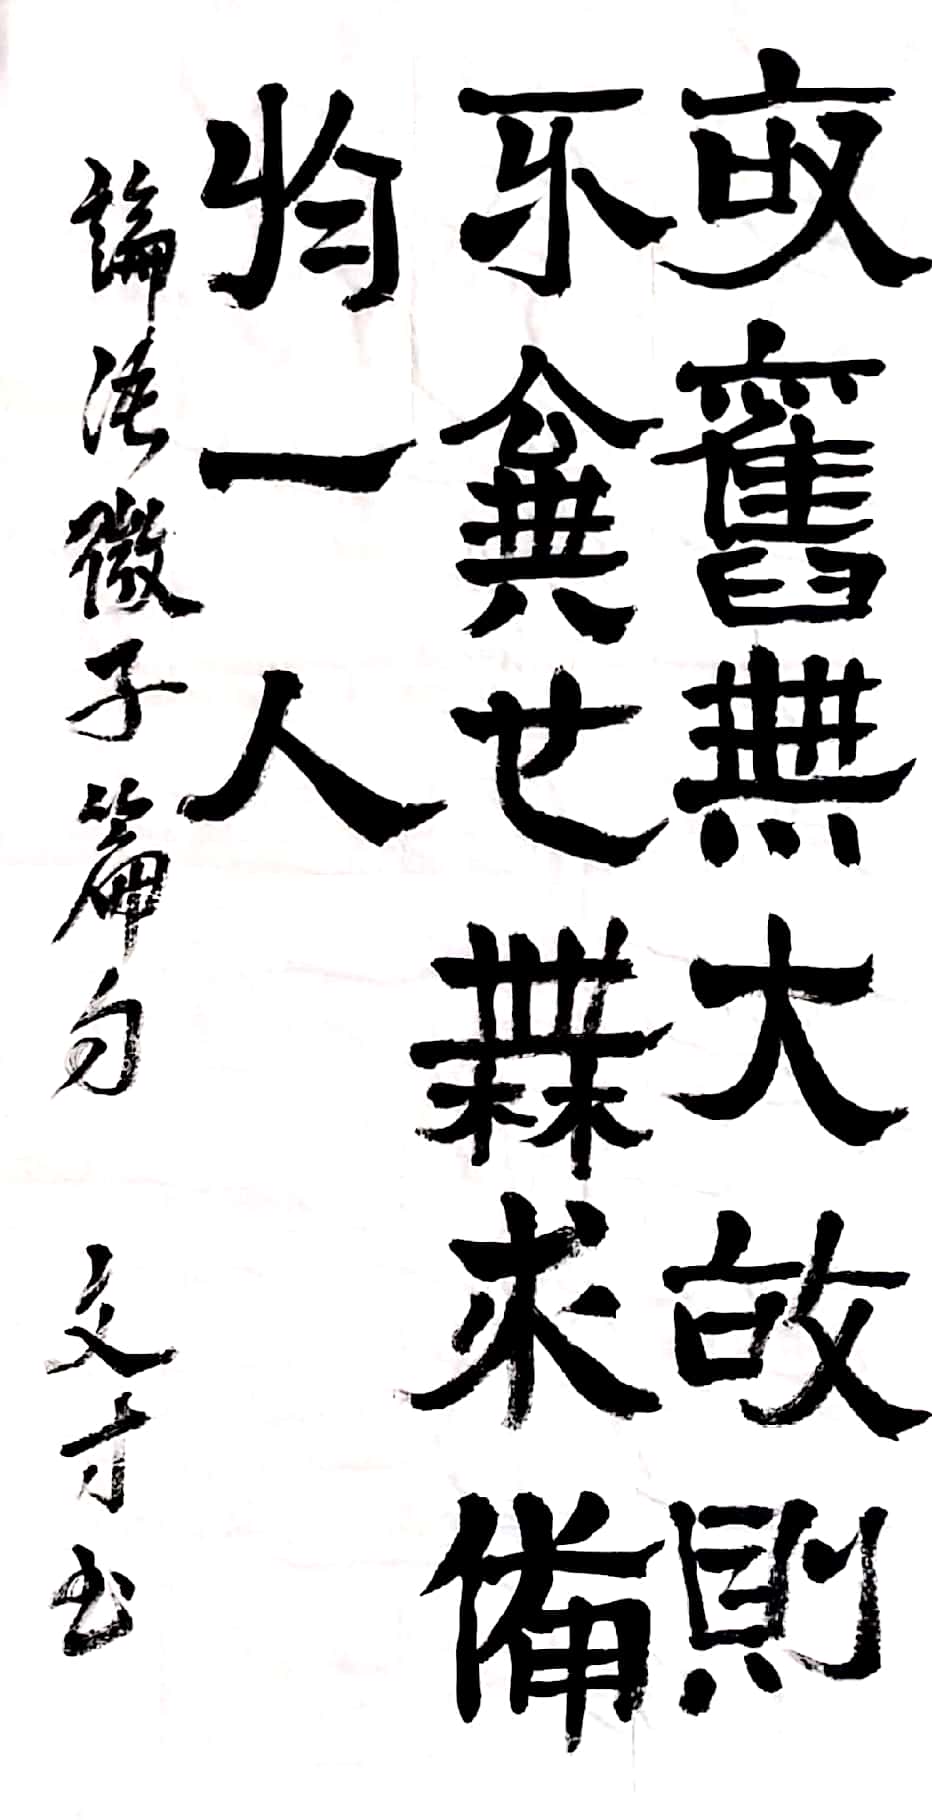 故舊無大故則
不棄也無求備
於一人
論語微子篇句 文才书